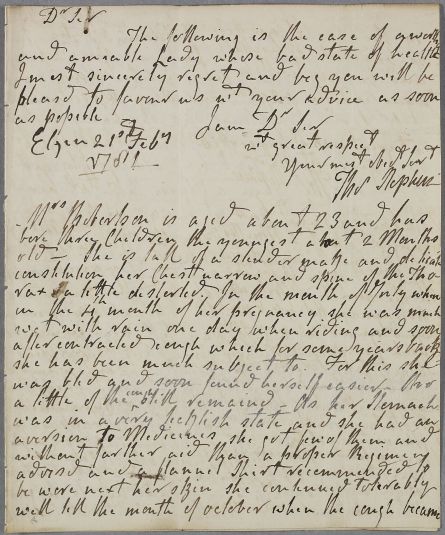 Dr Sir
The following is the case of a worthy
and amiable Lady whose bad state of health
I most sincerely regret and beg you will be
pleased to favour us wt your advice as soon
as possible
I am Dr Sir
Elgin 21st Feby
wt great respect
1781
Your most obedt Servt
Thos Stephen
Mrs Robertson is aged about 23 and has
bore three Children the youngest about 2 Months
old — She is tall of a slender make and delicate
constitution her Chest narrow and spine of the Tho-
rax a little distorted. In the month of July when
in the 4th month of her pregnancy she was much
wet with rain one day when riding and soon
after contracted cough which for some years back
she has been much subject to. For this she
was bled and soon found herself easier – tho
a little of the cough still remained – As her stomach
was in a very ticklish state and she had an
aversion to Medicines she got few of them and
without farther aid than a proper Regimen
advised and a flannel Shirt recommended to
be wore next her skin she continued tolerably
well till the month of october when the cough became